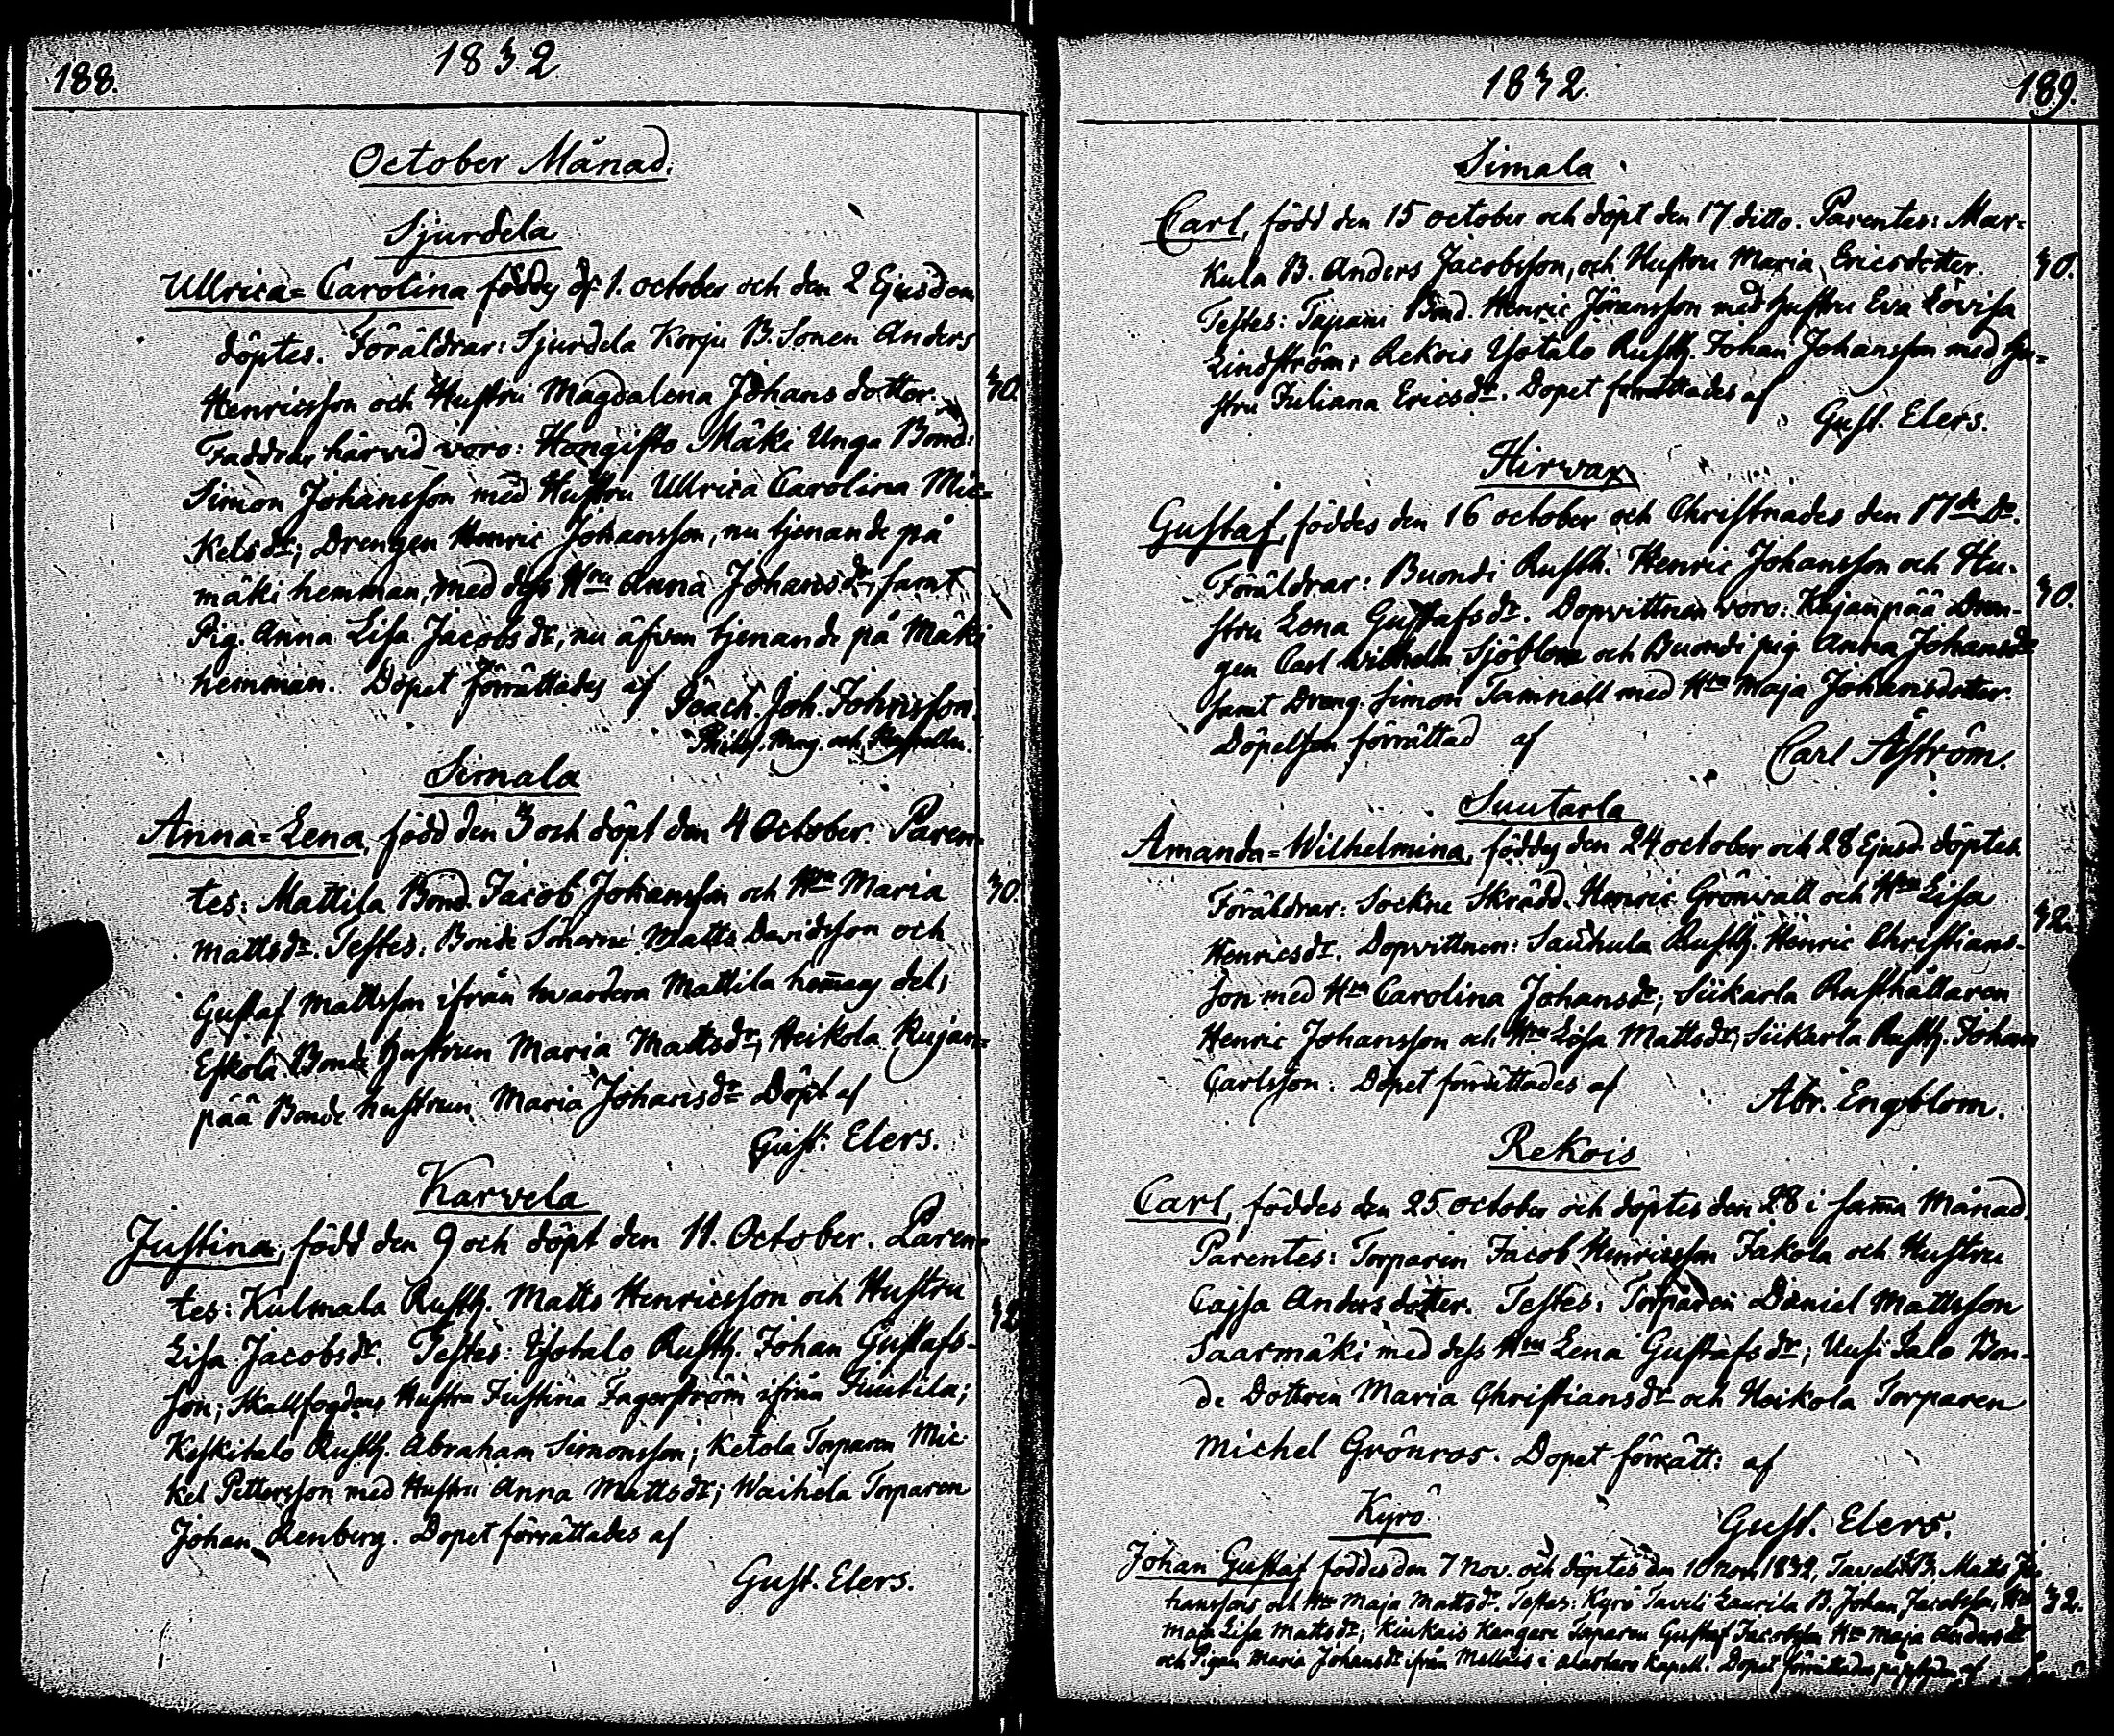 188.
1832
October Månad.
Sjurdela
Ullrica=Carolina föddes d. 1. october och den 2 Ejusdem
döptes. Föräldrar: Sjurdela Korju B. Sonen Anders
Henricsson och Hustru Magdalena Johans dotter.
30.
Faddrar härvid woro: Hongisto Mäki Unga Bond:
Simon Johansson med Hustru Ullrica Carolina Mic-
kelsdr; Drengen Henric Johansson, nu tjenande på
mäki hemman, med dess Hru Anna Johansdr, samt
Pig. Anna Lisa Jacobsdr, nu äfven tjenande på Mäki
hemman. Dopet förrättades af
Joach. Joh. Johnsson.
Philos. Mag. och Kapellan.
Simala
Anna=Lena, född den 3 och döpt den 4 October. Paren-
tes: Mattila Bond. Jacob Johansson och Hru Maria
30.
Mattsdr. Testes: Bonde Sönerne Matts Davidsson och
Gustaf Mattsson ifrån hwardera Mattila hemans del;
Eskola Bonde hustrun Maria Mattsdr; Heikola Kujan-
pää Bonde hustrun Maria Johansdr Döpt af
Gust. Elers.
Karwela
Justina, född den 9 och döpt den 11. October. Paren-
tes: Kulmala Rusth. Matts Henricsson och Hustru
32
Lisa Jacobsdr. Testes: Ysotalo Rusth. Johan Gustafs-
son; Skallfogdens Hustru Justina Fagerström ifrån Finnlila;
Keskitalo Rusth. Abraham Simonsson; Ketola Torparen Mic-
kel Pettersson med Hustru Anna Mattsdr; Waihela Torparen
Johan Renberg. Dopet förrättades af
Gust. Elers.
1832.
189.
Simala
Carl, född den 15 october och döpt den 17 ditto. Parentes: Mar-
kula B. Anders Jacobsson, och Hustru Maria Ericsdotter.
30.
Testes: Tapani Bond. Henric Jöransson med hustru Eva Lovisa
Lindström; Rekois Ysotalo Rusth. Johan Johansson med hu-
stru Juliana Ericsdr. Dopet förrättades af
Gust. Elers.
Hirwax
Gustaf, föddes den 16 october och Christnades den 17de Do.
Föräldrar: Buondi Rusth. Henric Johansson och Hu-
30.
stru Lena Gustafsdr. Dopvittnen woro: Kujanpää Dren-
gen Carl Wilhelm Sjöblom och Buondi pig. Anna Johansdr
samt Dreng. Simon Tamnell med Hru Maja Johansdotter.
Döpelsen förrättad af
Carl Åström.
Suutarla
Amanda=Wilhelmina, föddes den 24 october och 28 Ejusd. döptes
Föräldrar: Sockne Skrädd. Henric Grönvall och Hru Lisa
32.
Henricsdr. Dopvittnen: Sauhula Rusth. Henric Christians-
son med Hru Carolina Johansdr; Siikarla Rusthållaren
Henric Johansson och Hru Lisa Mattsdr; Siikarla Rusth. Johan
Carlsson. Dopet förrättades af
Abr. Engblom.
Rekois
Carl, föddes den 25 october och döptes den 28 i sama Månad
Parentes: Torparen Jacob Henricsson Jakola och Hustru
Cajsa Anders dotter. Testes: Torparen Daniel Mattsson
Saarmäki med dess Hru Lena Gustafsdr; Uusi Talo Bon-
de Dottren Maria Christiansdr och Heikola Torparen
Michel Grönros. Dopet förrätt: af
Gust. Elers.
Kyrö
Johan Gustaf föddes den 7 Nov. och döptes den 10 nov 1832, Taveli B. Matts Jo-
hanssons och Hru Maja Mattsdr. Testes: Kyrö Taveli Laurila B. Johan Jacobsson, Hru
32.
Maja Lisa Mattsdr; Kiukais Kangare Torparen Gustaf Jacobsson Hru Maja Andersdr
och Pigan Maria Johansdr ifrån Mellilä i Alastaro Kapell. Dopet förrättades af